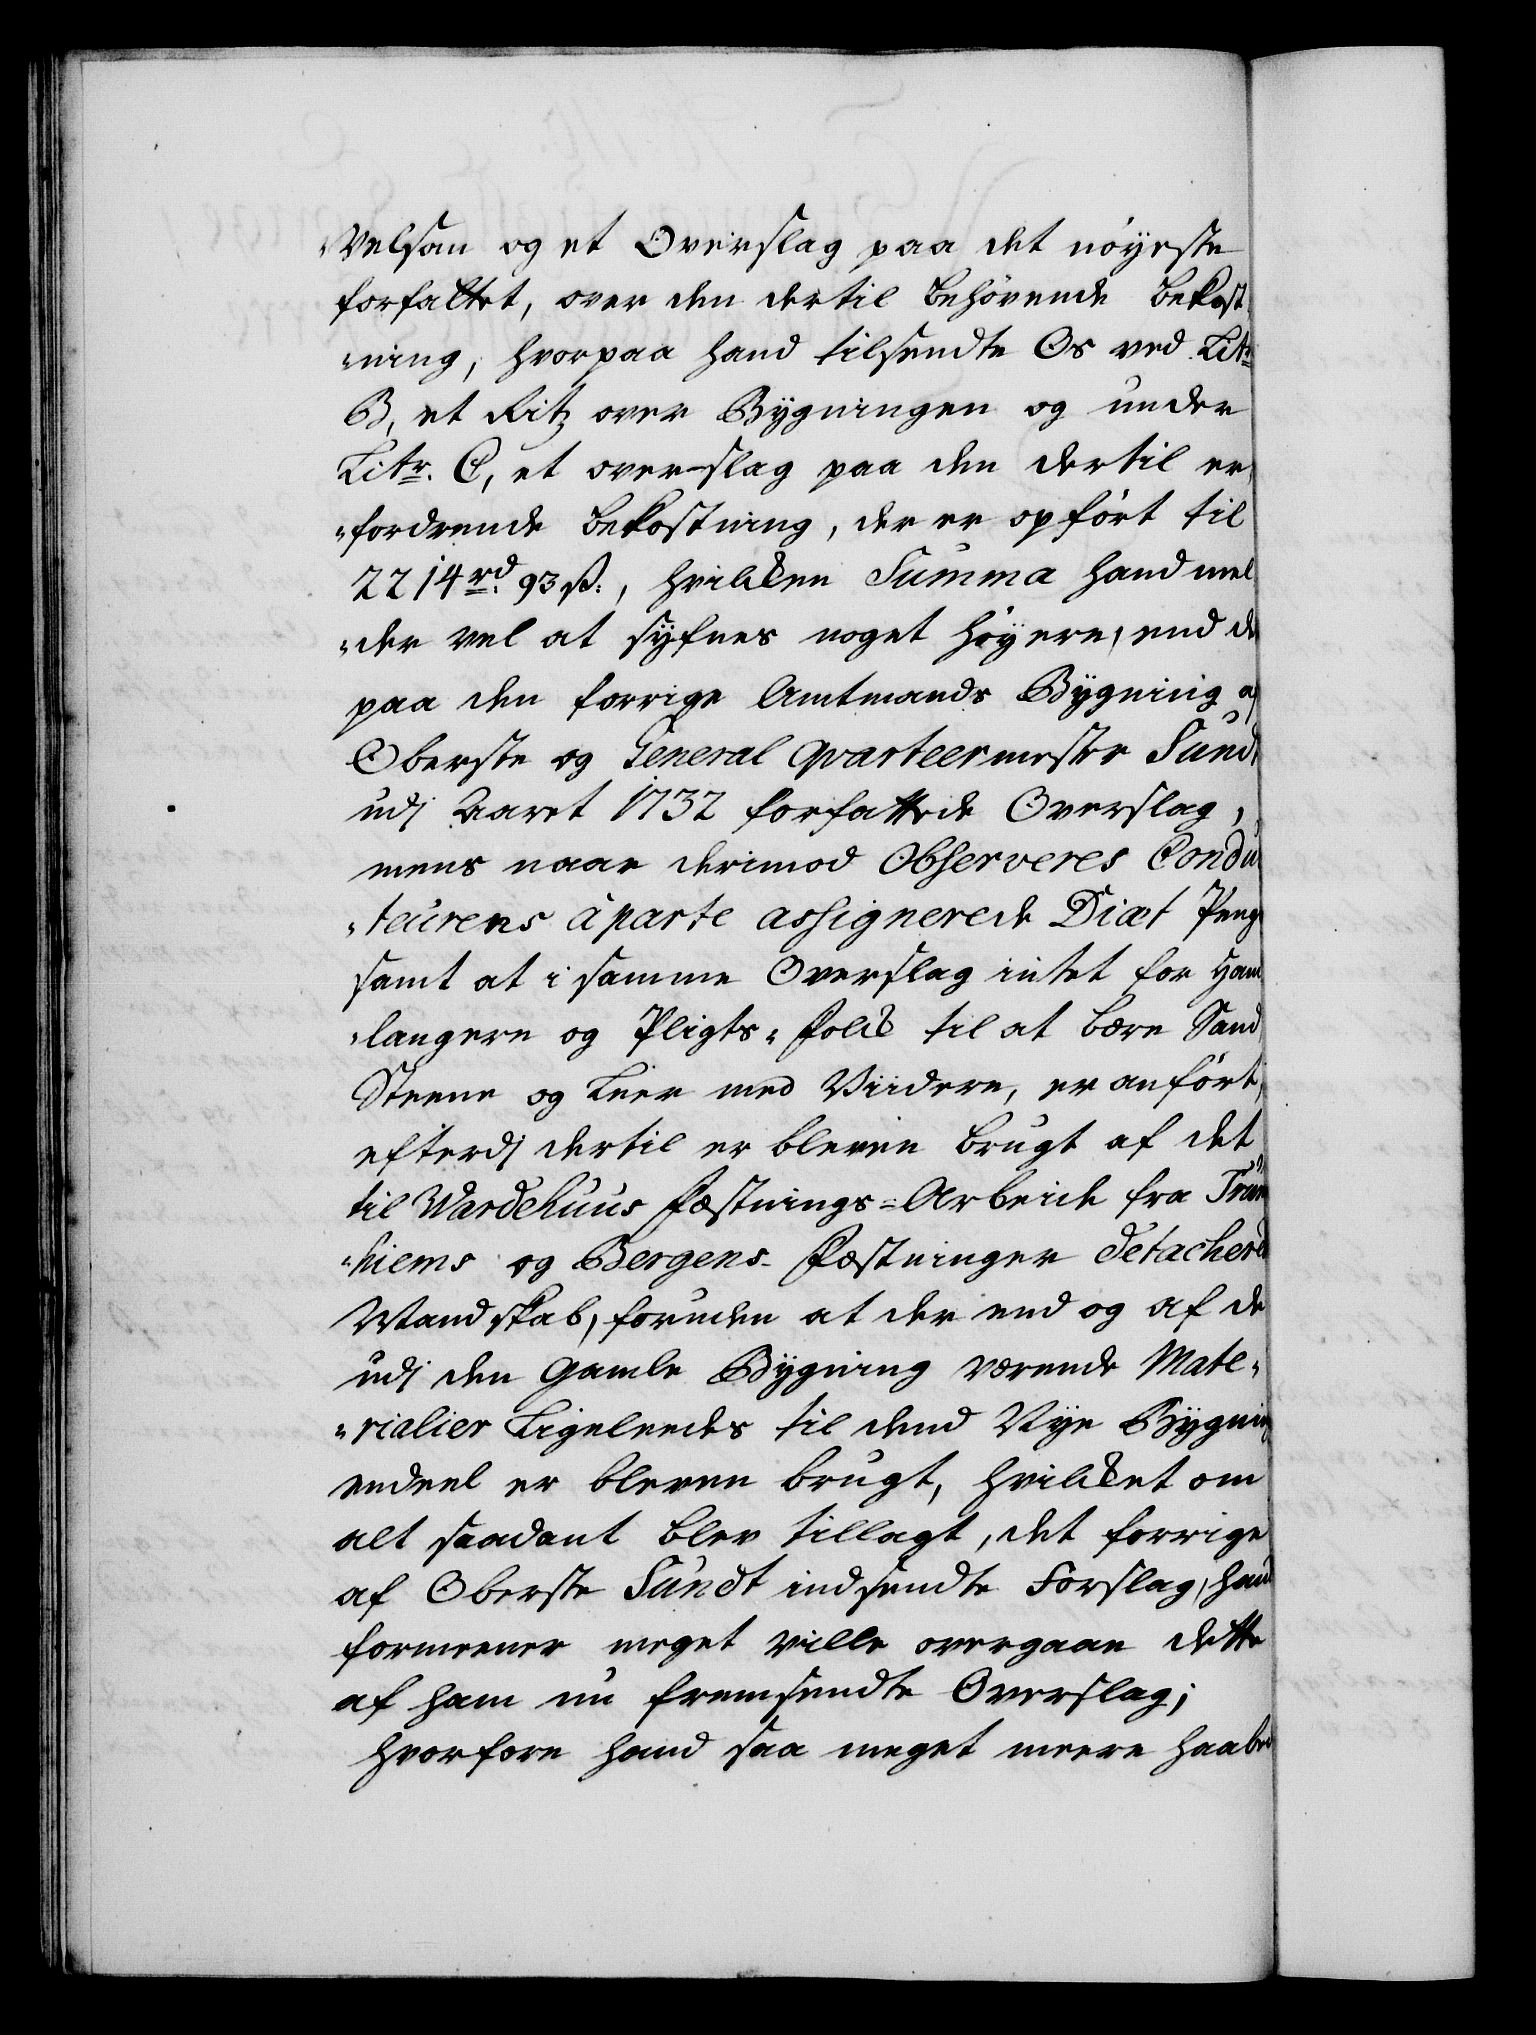 "Velsom og et Overslag paa det nöyeste
forfattet, over den dertil behövende bekost-
"ning, hvorpaa hand tilsendte Os ved Litr.
B, et Ritz over Bÿgningen og under
Litr. C, et over-slag paa den dertil er,
"fordrende bekostning, der er opfört til
2214 rd. 93 ß:, hvilcken Summa hand mel
"der vel at sÿfnes noget höyere, end de
paa den forrige Amtmands Bÿgning af
Oberste og General Qvarteermester Sundt
udj Aaret 1732 forfattede Overslag,
mens naar derimod Observeres Condu
"teurens àparte assignerede Diæt Peng
samt at i samme Overslag intet for Hand
"langere og Pligts-Folck til at bære Sand
Steene og Leer med Viidere, er anfört,
efterdj dertil er bleven brugt af det
til Wardehuus Fæstnings-Arbeide fra Trun
"hiems og Bergens Fæstninger detachered
Mandskab, foruden at der end og af de
udj den gamle Bÿgning værende Mate-
"rialier Ligeleedes til dend Nÿe Bÿgning
endeel er bleven brugt, hvilcket om
alt saadant blev tillagt, det forrige
af Oberste Sundt indsendte Forslag, hand
formeener meget ville overgaae dette
af ham nu fremsendte Overslag;
hvorfore hand saa meget meere haabed